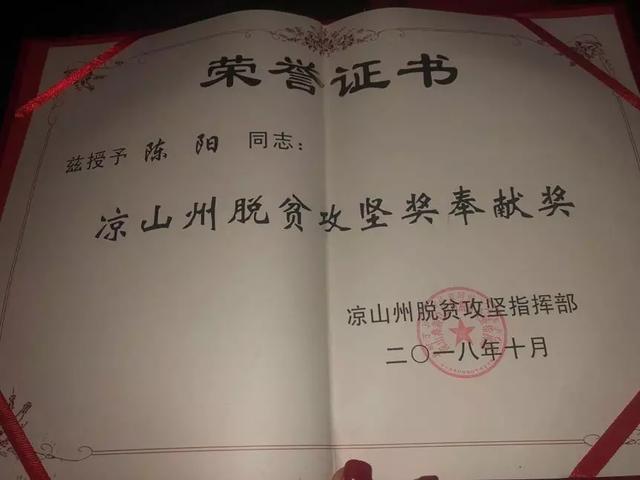 荣誉证书
兹授予 陈 阳 同志：
凉山州脱贫攻坚奖奉献奖
凉山州脱贫攻坚指挥部
二〇一八年十月